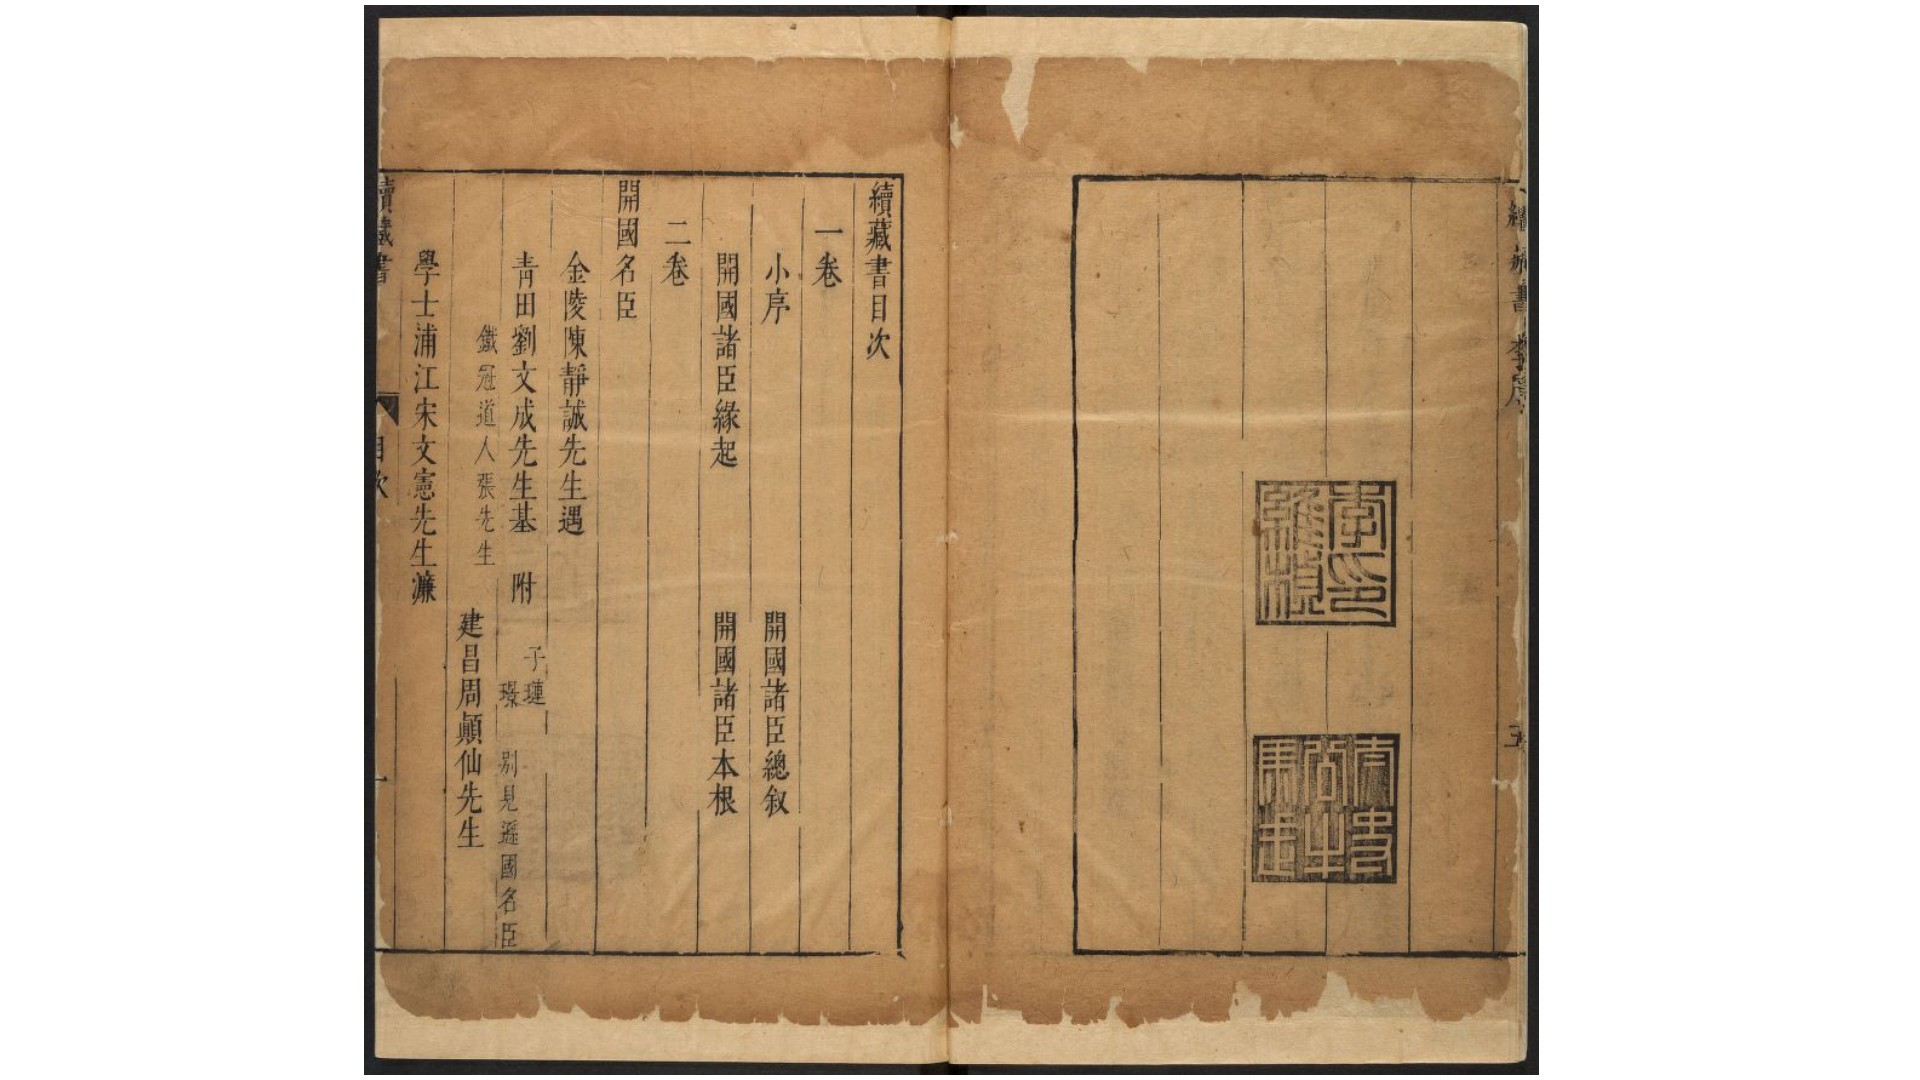 續藏書 李序 五
李印維楨
太史公牛馬走
續藏書目次
一卷
小序 開國諸臣總叙
開國諸臣緣起 開國諸臣本根
二卷
開國名臣
金陵陳靜誠先生遇
青田劉文成先生基 附 子璉 璟 別見遜國名臣
鐵冠道人張先生 建昌周顛仙先生
學士浦江宋文憲先生濂
續藏書 目次 一